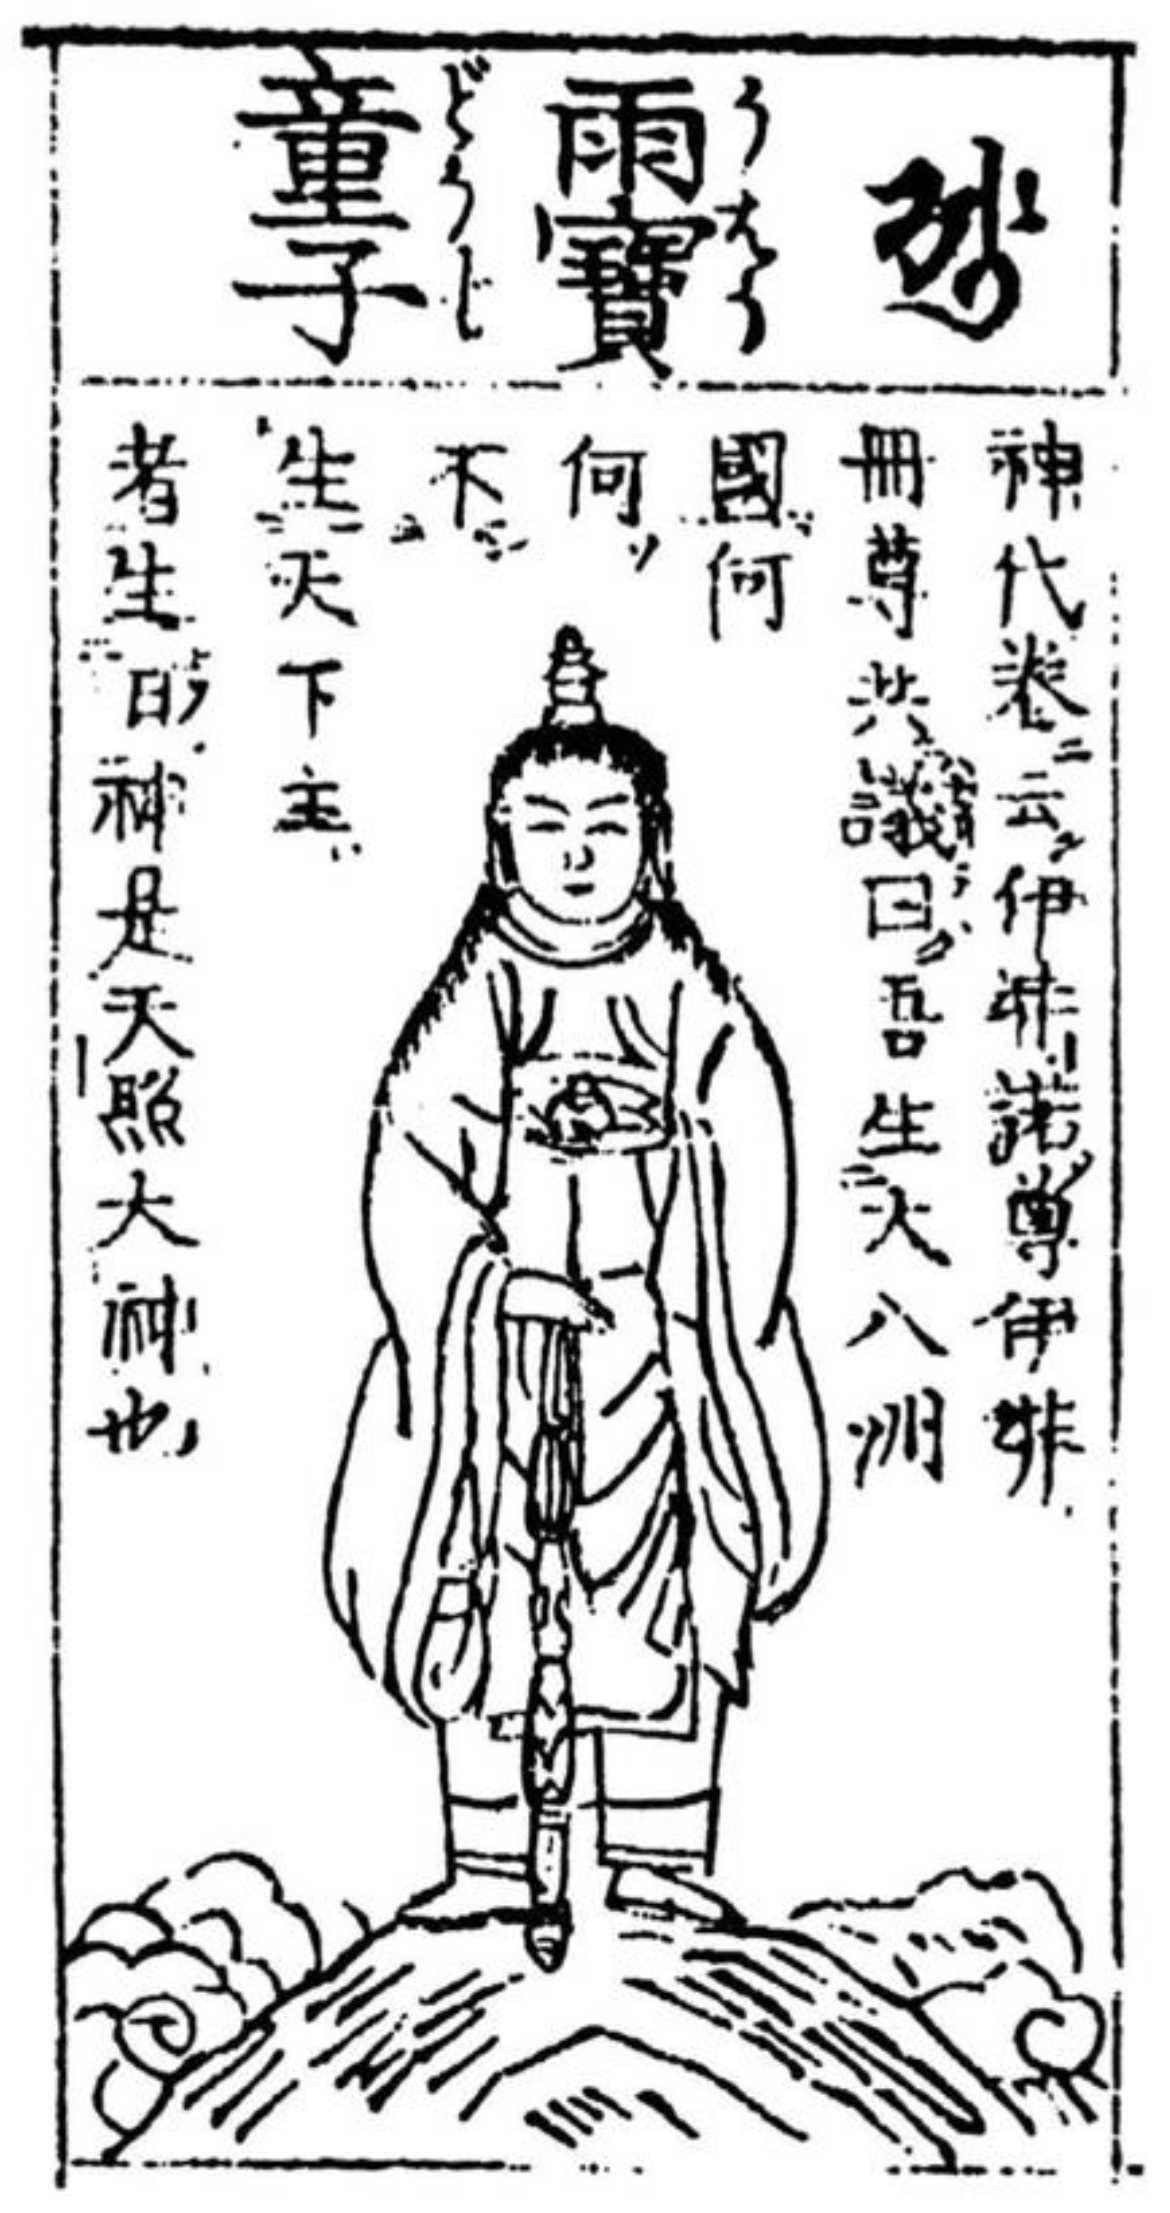 雨寶
うはう
童子
どうじ
神代巻云伊弉諾尊伊弉
冊尊共議曰吾生大八洲
國何
何
不
生天下主
者生日神是天照大神也